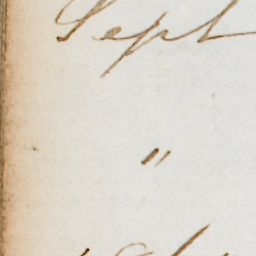 Sept
"